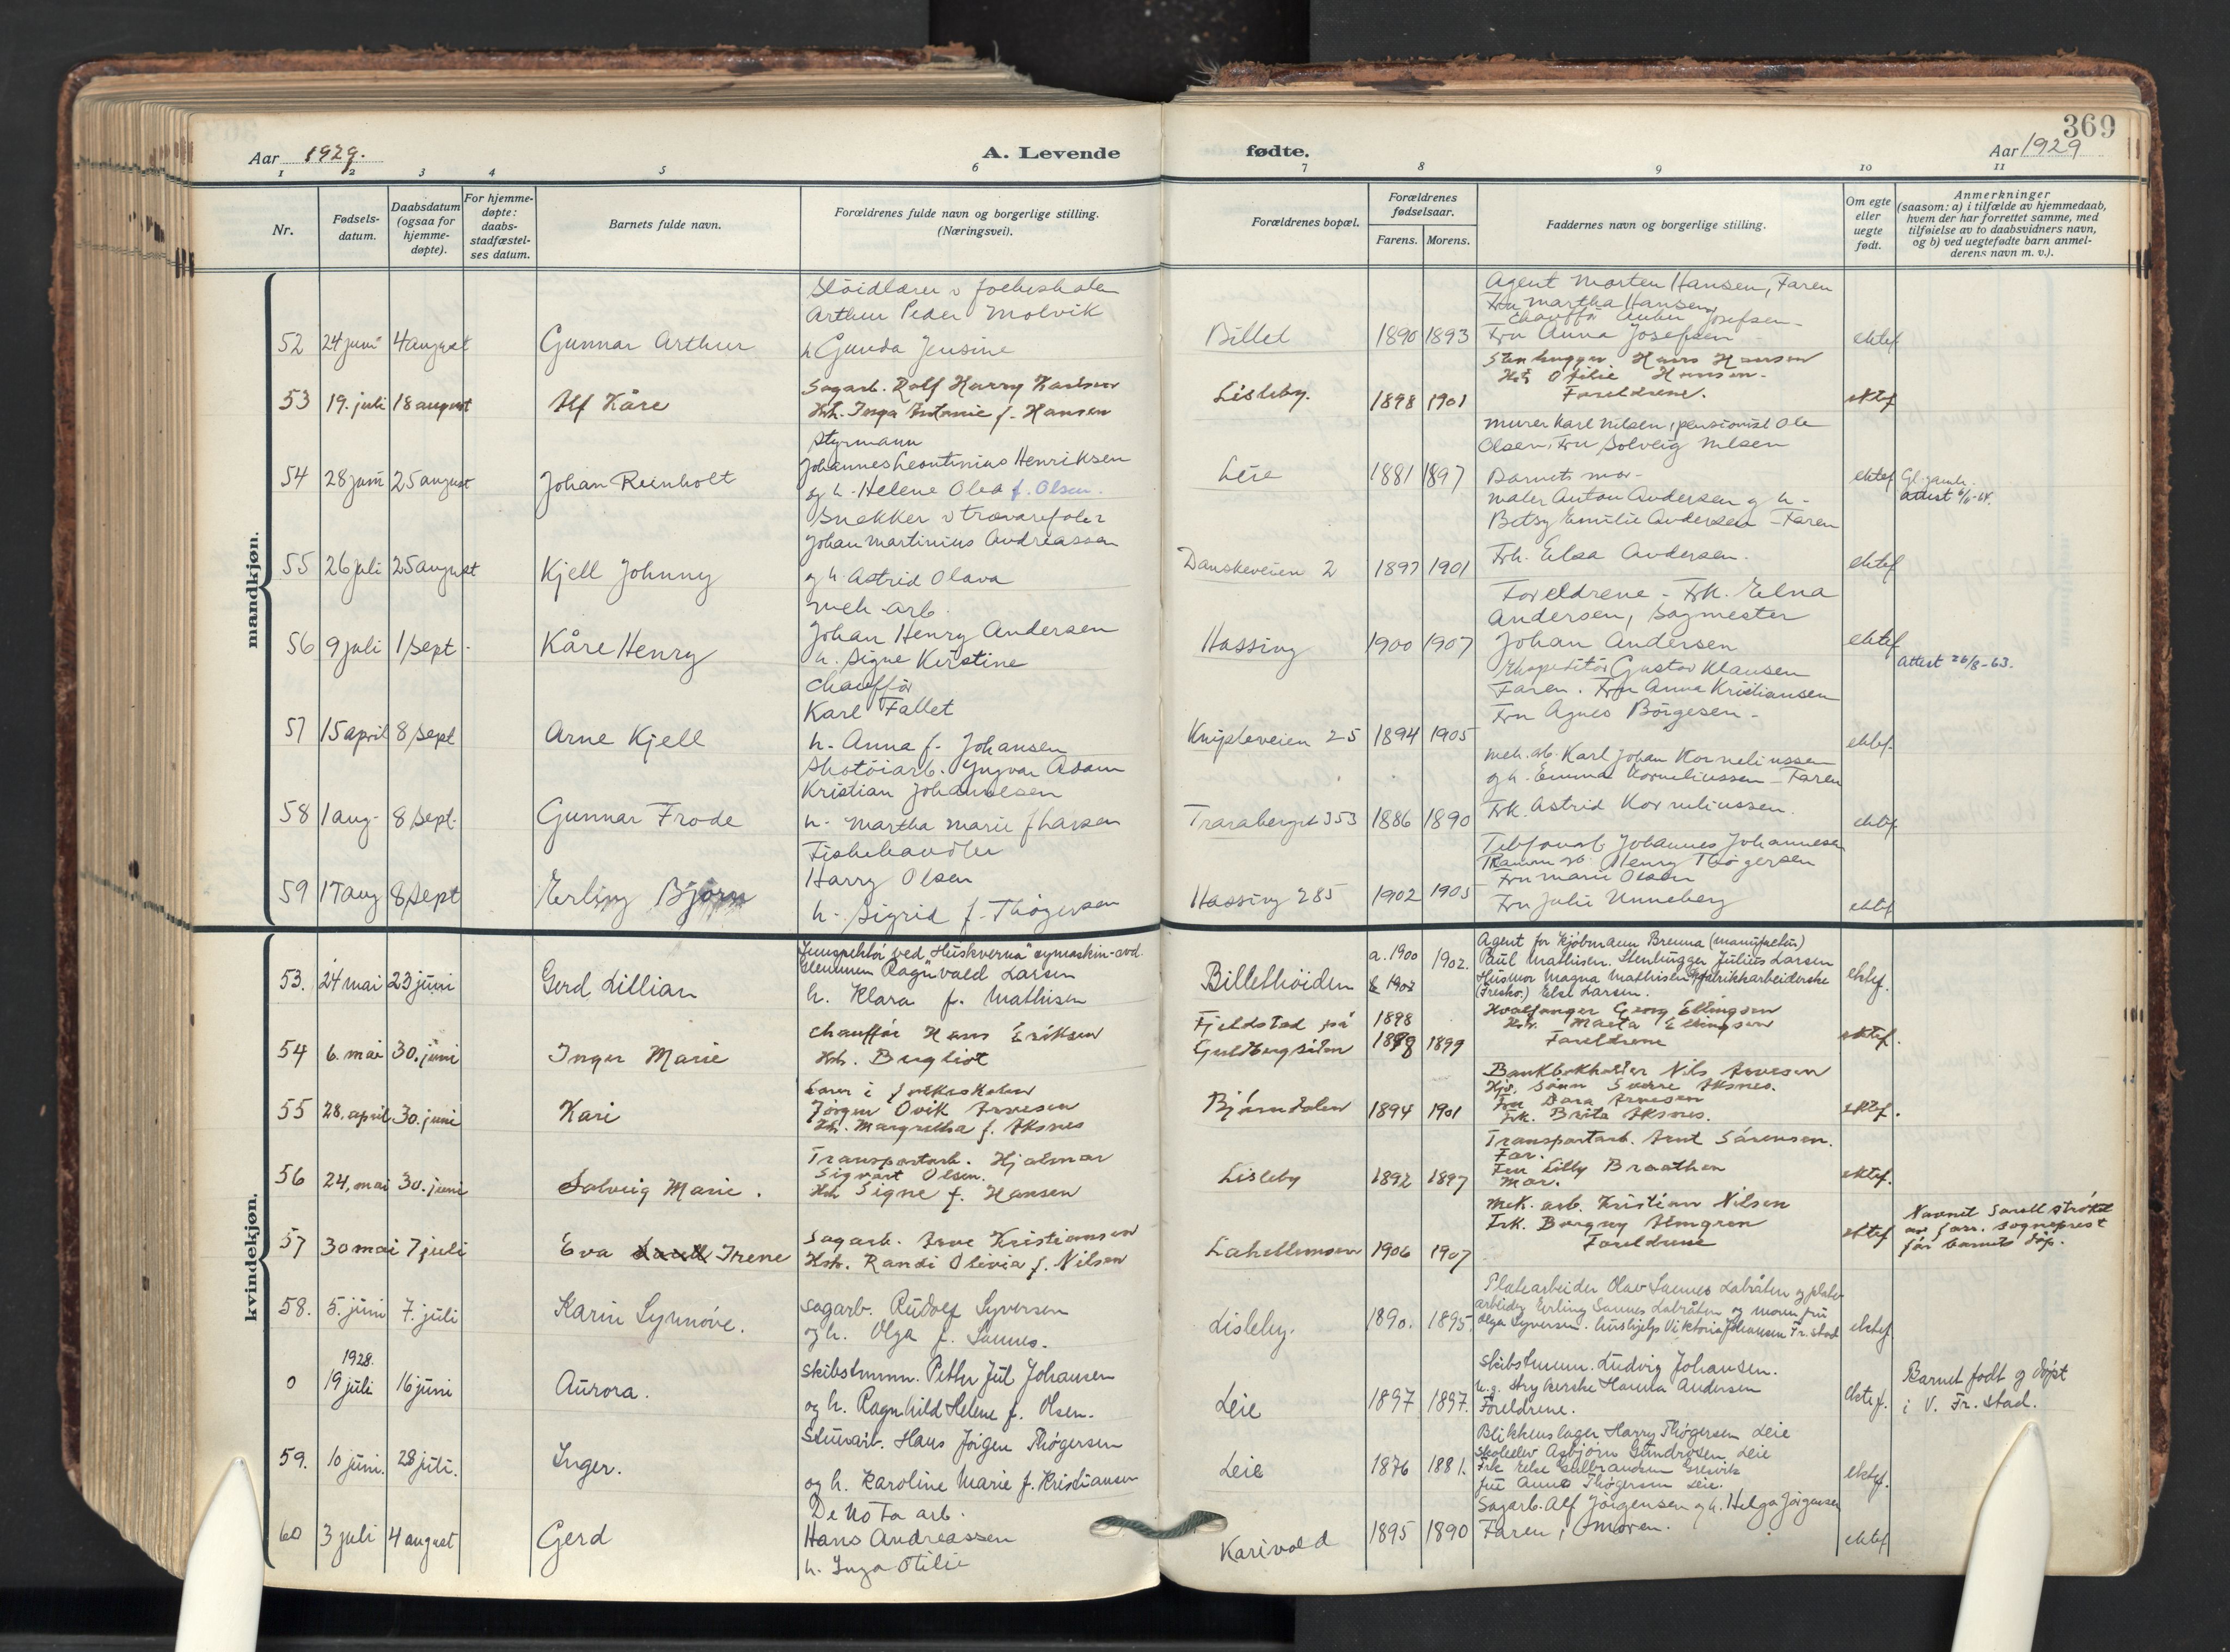 369
Aar 1929.
A. Levende
fødte.
Aar 1929
1 2 3 4 5 6 7 8 9 10 11
Nr.
Fødsels-
datum.
Daabsdatum
(ogsaa for
hjemme-
døpte).
For hjemme-
døpte:
daabs-
stadfæstel-
ses datum.
Barnets fulde navn.
Forældrenes fulde navn og borgerlige stilling.
(Næringsvei).
Forældrenes bopæl.
Forældrenes
fødselsaar.
Farens. Morens.
Faddernes navn og borgerlige stilling.
Om egte
eller
uegte
født.
Anmerkninger
(saasom: a) i tilfælde av hjemmedaab,
hvem der har forrettet samme, med
tilføielse av to daabsvidners navn,
og b) ved uegtefødte barn anmel-
derens navn m. v.).
mandkjøn.
52 24 juni 4 august Gunnar Arthur
Arthur Peder Molvik
h Gunda Jensine
Billet 1890 1893
Agent Morten Hansen, Faren
Fru Martha Hansen,
Fru Anna Josefsen
ektef
53 19. juli 18 august Alf Kåre
Sagarb. Rolf Harry Karlsen
Hst. Inga Antonie f. Hansen
Lisleby. 1898 1901
Stenhugger Hans Hansen
Hst Otilie Hansen.
Foreldrene.
ektef
54 28 juni 25 august Johan Reinholt
Styrmann
Johannes Leontinius Henriksen
og h. Helene Olea f. Olsen.
Leie 1881 1897
Murer Karl Nilsen, pensionist Ole
Olsen, Fru Solveig Nilsen
Barnets mor.
ektef
attest 6/6-64.
55 26 juli 25 august Kjell Johnny
Snekker v trævarefabr
Johan Martinius Andreassen
og h. Astrid Olava
Danskeveien 2 1897 1901
Maler Anton Andersen g h.
Betsy Emilie Andersen - Faren
Frk. Elsa Andersen.
ektef
56 9 juli 1 sept. Kåre Henry
mek. arb.
Johan Henry Andersen
h. Signe Kirstine
Hassing 1900 1907
Foreldrene - Frk. Elna
Andersen, Sagmester
Johan Andersen
ektef
Attest 26/8-63.
57 15 april 8 sept Arne Kjell
Chauffør
Karl Fallet
h. Anna f. Johansen
Knipleveien 25 1894 1905
Ekspeditør Gustav Klausen
Faren. Fru Anna Kristiansen
Fru Agnes Børgesen -
ektef.
58 1 aug. 8 sept. Gunnar Frode
Skotøiarb. Yngvar Adam
Kristian Johannesen
h. Martha Marie f Larsen
Traraberget 353 1886 1890
mek. arb. Karl Johan Korneliussen
og h. Emma Korneliussen - Faren
Frk. Astrid Korneliussen.
ektef
59 17 aug 8 sept Erling Bjørn
Fiskehandler
Harry Olsen
h. Sigrid f. Thøgersen
Hassing 285 1902 1905
Telefonarb Johannes Johannesen
Henry Thøgersen
Fru Marie Olsen
Fru Julie Unneberg
ektef
kvindekjøn.
53. 24 mai 23 juni Gerd Lillian
Innspektør ved "Huskverna" symaskin-avd.
Glemmen Ragnvald Larsen
h. Klara f. Mathisen
Billethøiden a. 1900 1902.
Agent for kjøbmann Brenna (manufaktur)
Paul Mathisen. Stenhugger Julius Larsen
Husmor Magna Mathisen, fabrikkarbeiderske
Else Larsen.
ektef.
54 6. mai 30. juni Inger Marie
Chauffør Hans Eriksen
Hst. Bergliot
Fjeldstad på
Guldbergsiden 1898 1899
Hvalfanger Georg Ellingsen
Hst. Marta Ellingsen
Foreldrene
ektef.
55 28. april 30. juni Kari
Lærer i folkeskolen
Jørgen Ovik Arnesen
Hst. Margretha f. Aksnes
Bjørndalen 1894 1901
Bankbokholder Nils Arnesen
Sverre Aksnes.
Fru Dora Arnesen
Frk. Brita Aksnes.
ektef.
56 24. mai 30. juni Solveig Marie.
Transportarb. Hjalmar
Sigvart Olsen.
Hst Signe f. Hansen
Lisleby 1892 1897
Transportarb. Arnt Sørensen.
Far.
Fru Lilly Braathen
Mor.
ektef.
57 30 mai 7 juli Eva Irene
Sagarb. Arne Kristiansen
Hst. Randi Olivia f. Nilsen
Lahellemoen 1906 1907
Mek. arb. Kristian Nilsen
Frk. Borgny Almgren
Foreldrene
ektef
av sogneprest
før barnets døp.
58. 5. juni 7. juli Karin Synnøve.
Sagarb. Rudolf Syversen
og h. Olga f. Sannes.
Lisleby. 1890. 1895.
Platearbeider Olav Sannes Labråten og plate-
arbeider Erling Sannes Labråten og moren fru
Olga Syversen. hushjelp Viktoria Johansen Fr.stad
ektef
1928.
0 19 juli 16 juni Aurora.
Skibstømm. Petter Jul Johansen
og h. Ragnhild Helene f. Olsen.
Leie 1897 1897.
Skibstømm. Ludvig Johansen.
h.g. Strykerske Hanna Andersen
Foreldrene.
ektef.
Barnet født og døpt
i V. Fr.stad.
59. 10 juni. 28 juli. Inger.
Stuerarb. Hans Jørgen Thøgersen
og h. Karoline Marie f. Kristiansen
Leie 1876 1881.
Blikkenslager Harry Thøgersen Leie
Skoleelev Asbjørn Gundersen Leie
Frk Else Gulbrandsen Gresvik
fru Anna Thøgersen Leie.
ektef.
60 3 juli 4 august Gerd
De No Fa arb.
Hans Andreassen
h. Inga Otilie
Karivold 1895 1890
Sagarb. Alf Jørgensen og h. Helga Jørgensen
Faren, moren.
ektef